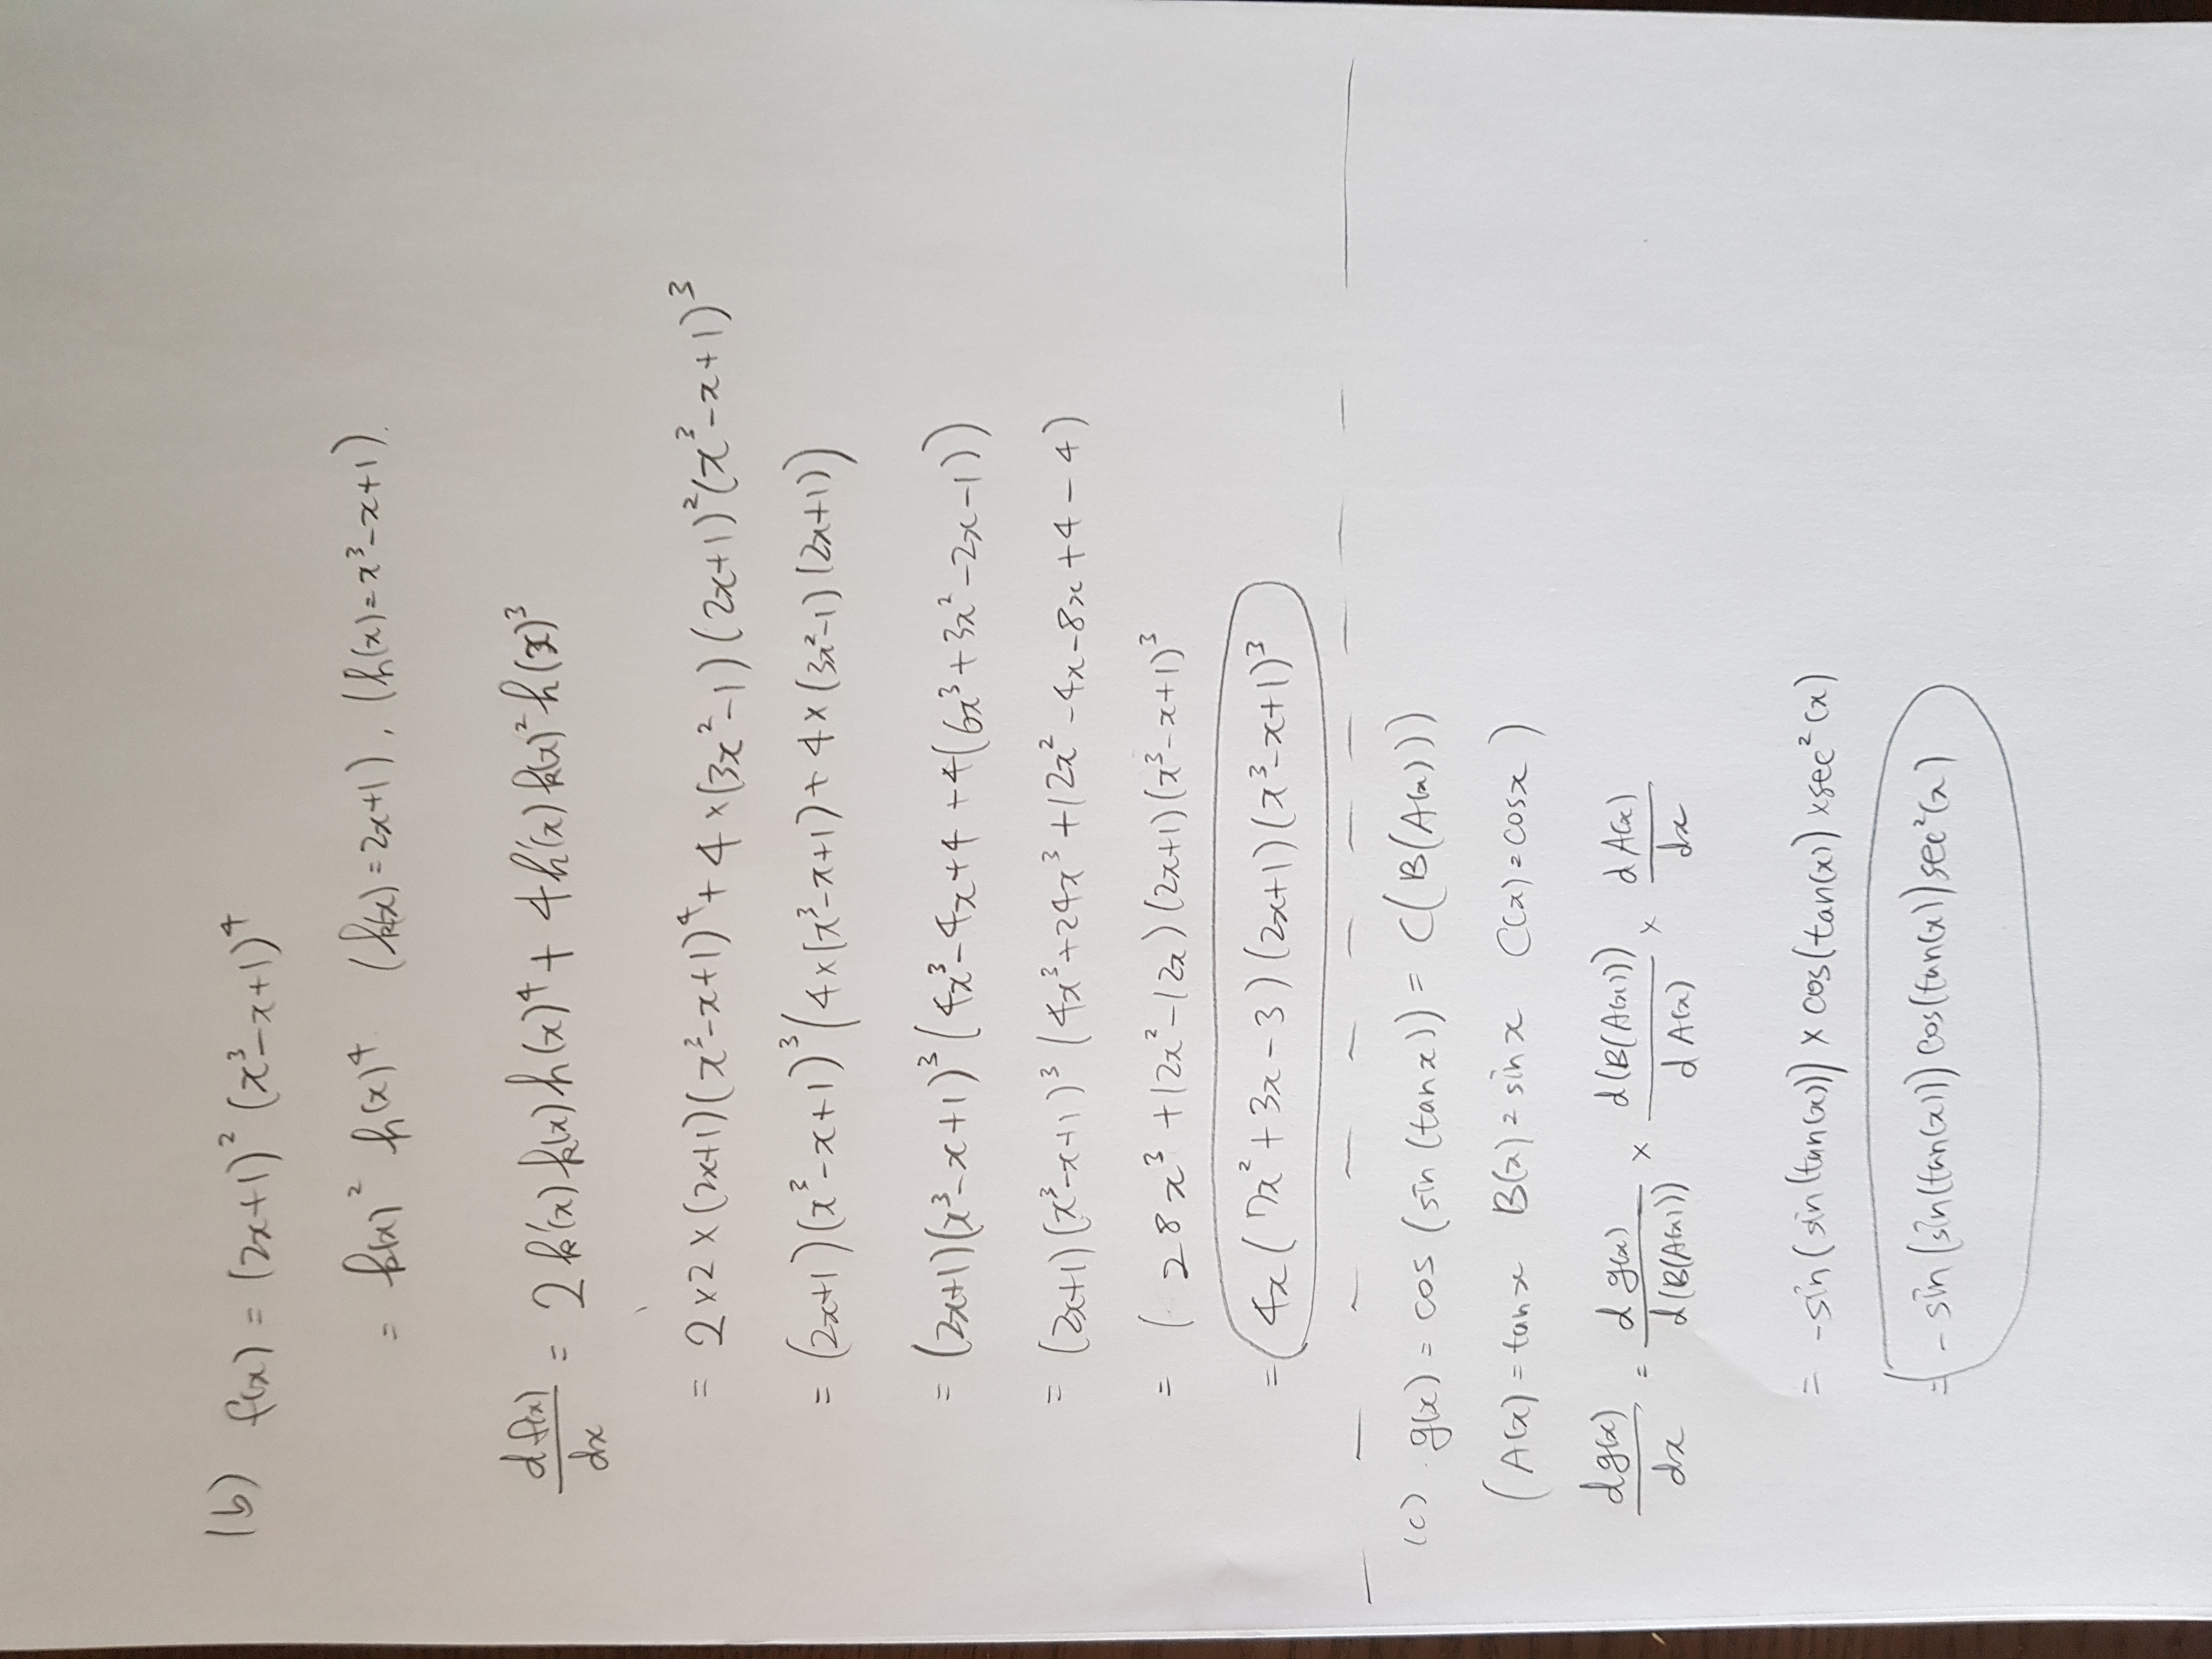 (b) f(x) = (2x+1)² (x³-x+1)⁴
= k(x)² h(x)⁴ (k(x)=2x+1), (h(x)=x³-x+1).
df(x)/dx = 2k'(x)k(x)h(x)⁴ + 4h'(x)k(x)²h(x)³
= 2×2×(2x+1)(x³-x+1)⁴ + 4×(3x²-1)(2x+1)²(x³-x+1)³
= (2x+1)(x³-x+1)³(4×(x³-x+1)+4×(3x²-1)(2x+1))
= (2x+1)(x³-x+1)³(4x³-4x+4+4(6x³+3x²-2x-1))
= (2x+1)(x³-x+1)³(4x³+24x³+12x²-4x-8x+4-4)
= (28x³+12x²-12x)(2x+1)(x³-x+1)³
= 4x(7x²+3x-3)(2x+1)(x³-x+1)³
(c) g(x) = cos(sin(tanx)) = C(B(A(x)))
(A(x)=tanx B(x)=sinx C(x)=cosx)
dg(x)/dx = dg(x)/d(B(A(x))) × d(B(A(x)))/dA(x) × dA(x)/dx
= -sin(sin(tan(x))) × cos(tan(x)) × sec²(x)
= -sin(sin(tan(x)))cos(tan(x))sec²(x)